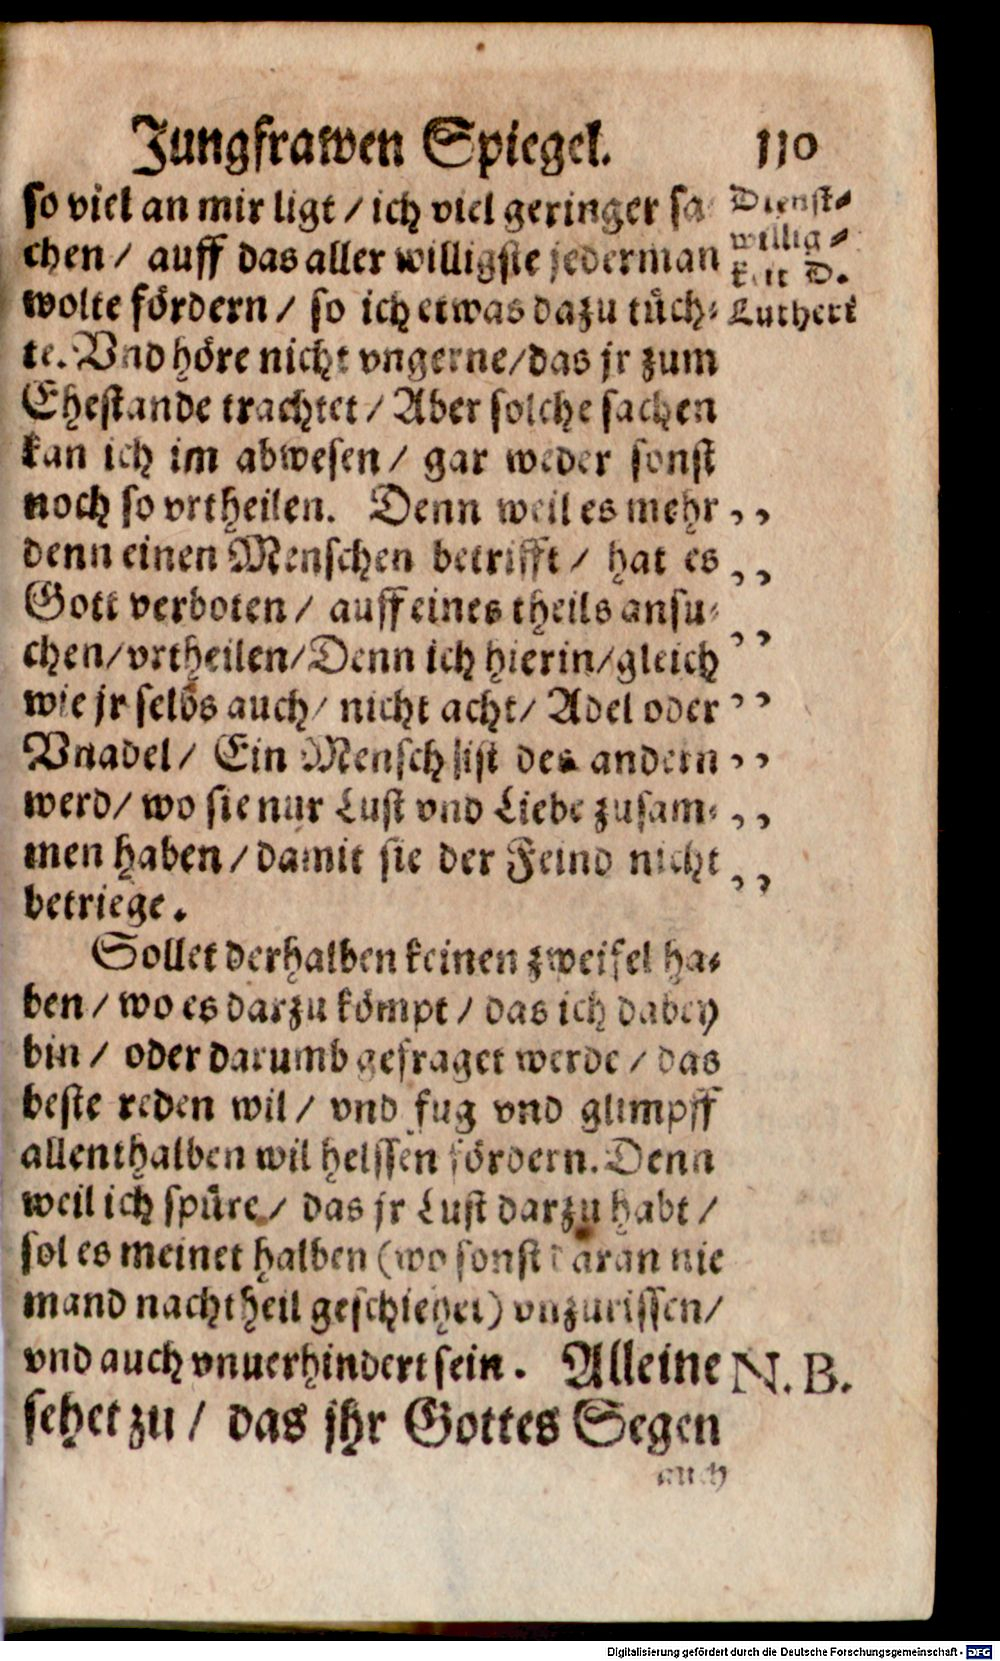 Jungfrawen Spiegel. 110
so viel an mir ligt / ich viel geringer sa⸗
chen / auff das aller willigste jederman
wolte fördern / so ich etwas dazu tüch⸗
te. Vnd höre nicht vngerne/das jr zum
Ehestande trachtet / Aber solche sachen
kan ich im abwesen / gar weder sonst
noch so vrtheilen. Denn weil es mehr
denn einen Menschen betrifft / hat es
Gott verboten / auff eines theils ansu⸗
chen/vrtheilen/Denn ich hierin/gleich
wie jr selbs auch/ nicht acht/ Adel oder
Vnadel/ Ein Mensch ist des andern
werd/ wo sie nur Lust vnd Liebe zusam⸗
men haben / damit sie der Feind nicht
betriege.
Sollet derhalben keinen zweifel ha⸗
ben / wo es darzu kömpt / das ich dabey
bin / oder darumb gefraget werde / das
beste reden wil / vnd fug vnd glimpff
allenthalben wil helffen fördern. Denn
weil ich spüre / das jr Lust darzu habt /
sol es meinet halben (wo sonst daran nie
mand nachtheil geschiehet) vnzurissen/
vnd auch vnuerhindert sein. Alleine
sehet zu / das jhr Gottes Segen
auch
Dienst⸗
willig⸗
keit D.
Lutheri
N. B.
Digitalisierung gefördert durch die Deutsche Forschungsgemeinschaft - DFG